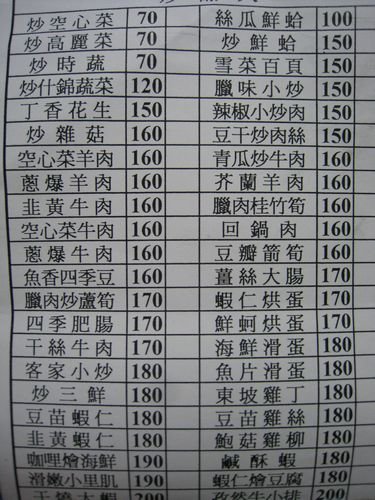 炒空心菜 70 絲瓜鮮蛤 100
炒高麗菜 70 炒鮮蛤 150
炒時蔬 70 雪菜百頁 150
炒什錦蔬菜 120 臘味小炒 150
丁香花生 150 辣椒小炒肉 150
炒雜菇 160 豆干炒肉絲 150
空心菜羊肉 160 青瓜炒牛肉 160
蔥爆羊肉 160 芥蘭羊肉 160
韭黃牛肉 160 臘肉桂竹筍 160
空心菜牛肉 160 回鍋肉 160
蔥爆牛肉 160 豆瓣箭筍 160
魚香四季豆 160 薑絲大腸 170
臘肉炒蘆筍 170 蝦仁烘蛋 170
四季肥腸 170 鮮蚵烘蛋 170
干絲牛肉 170 海鮮滑蛋 180
客家小炒 180 魚片滑蛋 180
炒三鮮 180 東坡雞丁 180
豆苗蝦仁 180 豆苗雞絲 180
韭黃蝦仁 180 鮑菇雞柳 180
咖哩燴海鮮 190 鹹酥蝦 180
滑嫩小里肌 190 蝦仁燴豆腐 180
干燒大蝦 200 孜然牛小排 200